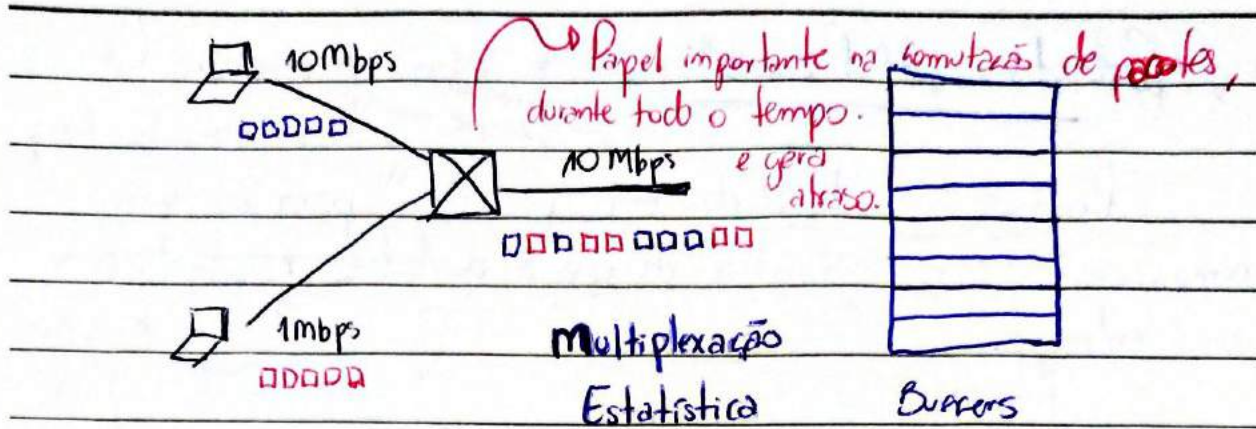 10Mbps
Papel importante na comutação de pacotes,
durante todo o tempo.
e gera
atraso.
10 Mbps
1Mbps
Multiplexação
Estatística
Buffers